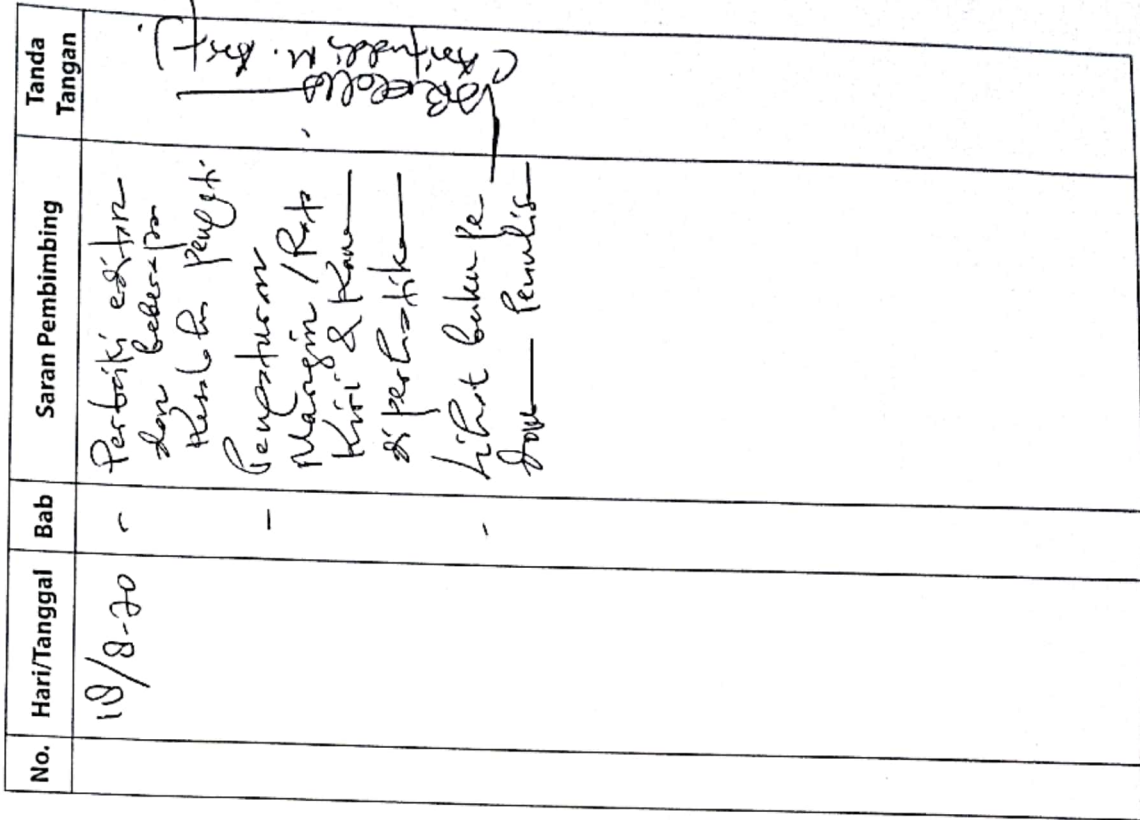 No. Hari/Tanggal Bab Saran Pembimbing Tanda Tangan
18/8-20
- Perbaiki editan
dan beberapa
Kesalahan
- Pengaturan
Margin / Rata
Kiri & Kanan
diperhatikan
- Lihat buku pe
doman Penulisan